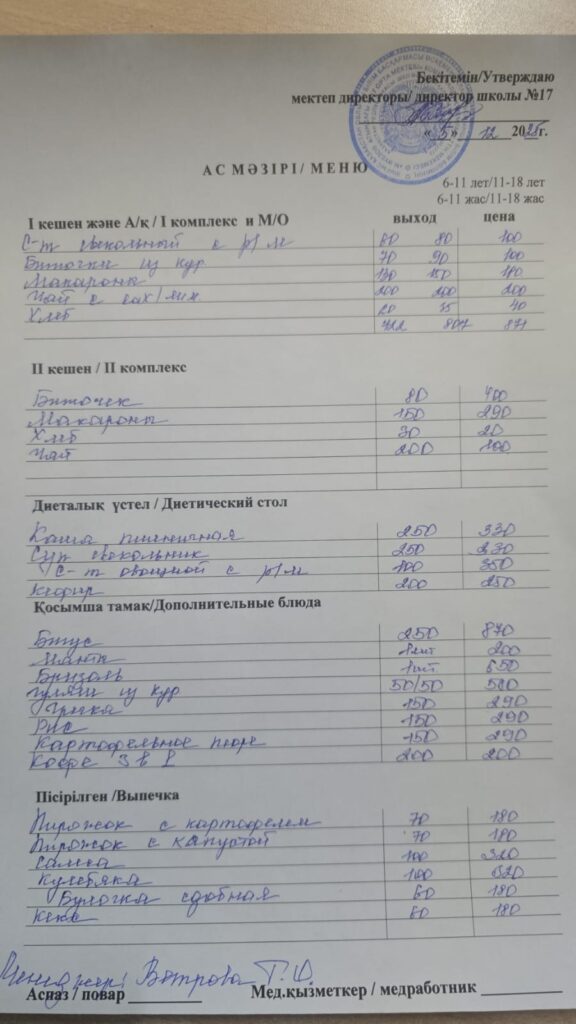 Бекітемін/Утверждаю
мектеп директоры/ директор школы №17
« 5 » 12 2025г.
АС МӘЗІРІ / МЕНЮ
6-11 лет/11-18 лет
6-11 жас/11-18 жас
І кешен және А/қ / І комплекс и М/О выход цена
С-т свекольный с р/м 60 80 100
Биточки из кур 70 90 100
Макароны 130 150 180
Чай с сах/лим 200 200 200
Хлеб 20 35 40
807 871
ІІ кешен / ІІ комплекс
Биточек 80 400
Макароны 150 290
Хлеб 30 20
Чай 200 100
Диеталық үстел / Диетический стол
Каша пшеничная 250 330
Суп свекольник 250 230
С-т овощной с р/м 100 350
Кефир 200 250
Қосымша тамак/Дополнительные блюда
Бигус 250 870
Манты 1шт 200
Бризоль 1шт 650
гуляш из кур 50/50 500
Гречка 150 290
Рис 150 290
Картофельное пюре 150 290
Кофе 3 в 1 200 200
Пісірілген /Выпечка
Пирожок с картофелем 70 180
Пирожок с капустой 70 180
Самса 100 320
Кулебяка 100 320
Булочка сдобная 60 180
Кекс 60 180
Менеджер:
Асназ / повар Мед.қызметкер / медработник